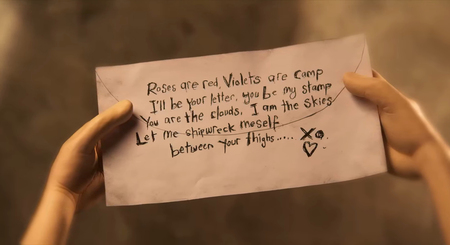 Roses are red, Violets are camp
I'll be your letter, you be my stamp
You are the clouds, I am the skies
Let me shipwreck meself
between your thighs..... XO
♡.